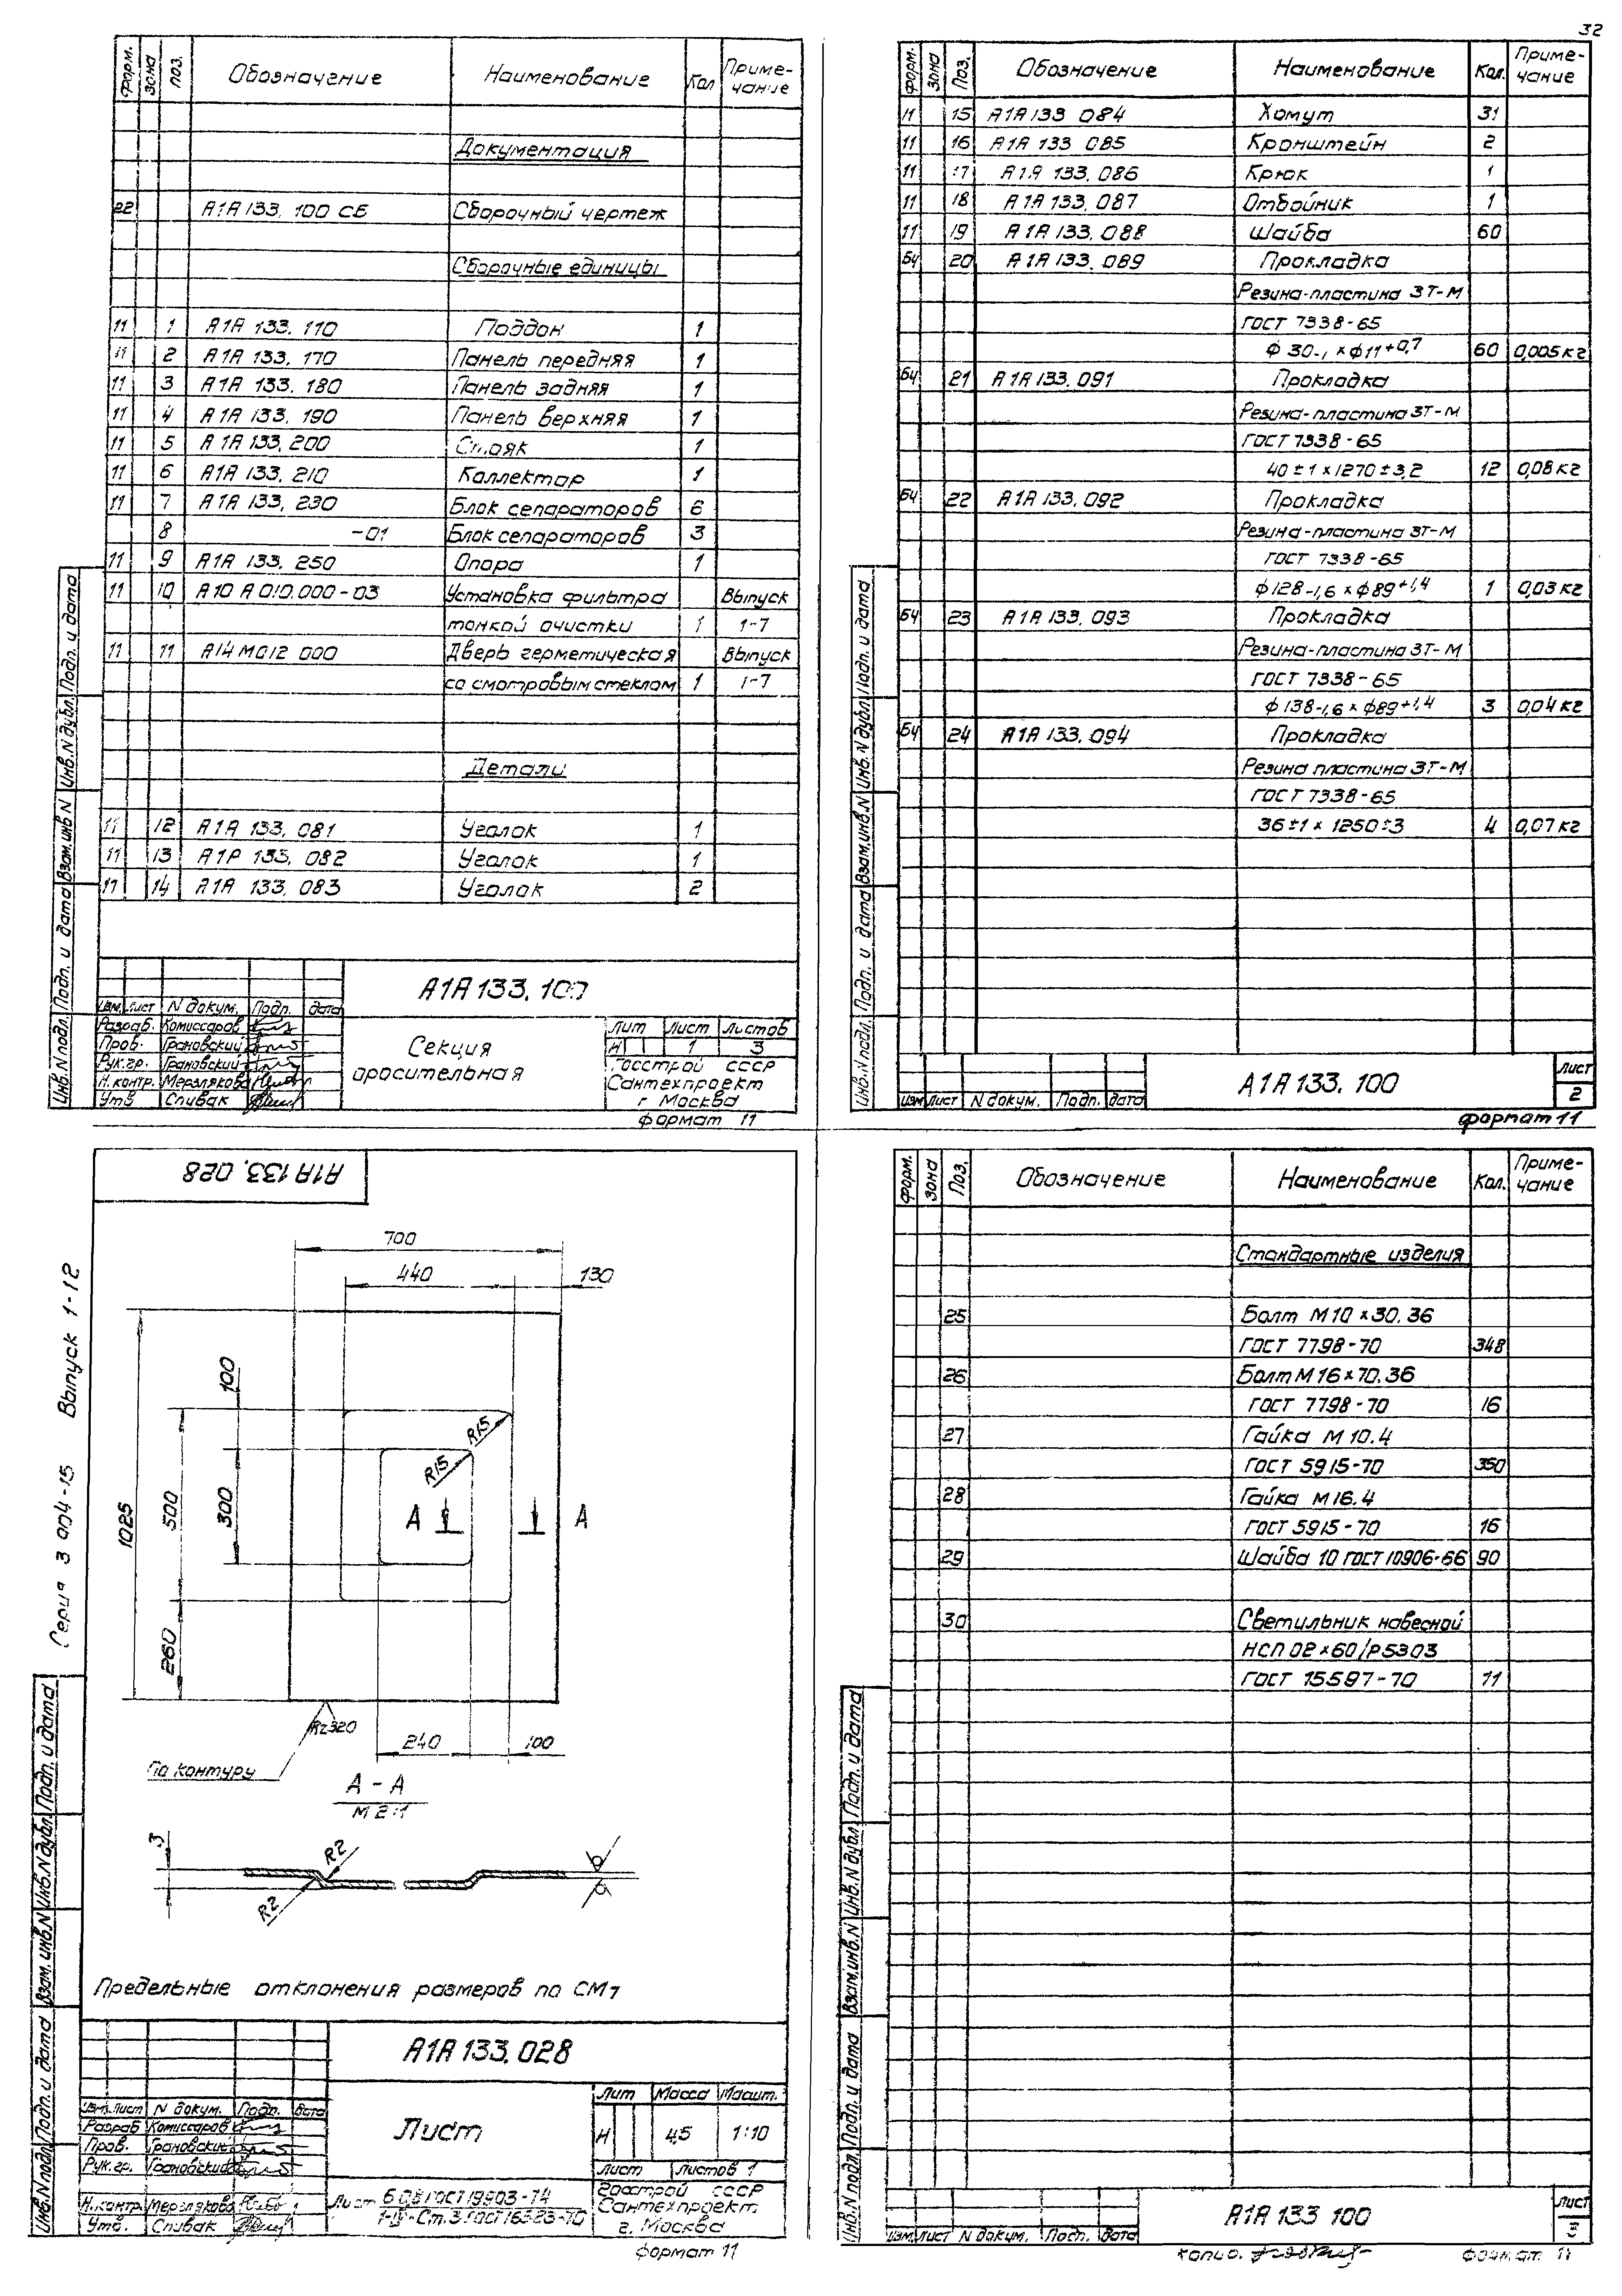 32
форм. зона поз. Обозначение Наименование Кол Приме-
чание
Документация
22 А1А 133. 100 СБ Сборочный чертеж
Сборочные единицы
11 1 А1А 133. 110 Поддон 1
11 2 А1А 133. 170 Панель передняя 1
11 3 А1А 133. 180 Панель задняя 1
11 4 А1А 133. 190 Панель верхняя 1
11 5 А1А 133. 200 Стояк 1
11 6 А1А 133. 210 Коллектор 1
11 7 А1А 133. 230 Блок сепараторов 6
8 -01 Блок сепараторов 3
11 9 А1А 133. 250 Опора 1
11 10 А10 А 010.000-03 Установка фильтра Выпуск
тонкой очистки 1 1-7
11 11 А14 М012 000 Дверь герметическая Выпуск
со смотровым стеклом 1 1-7
Детали
11 12 А1А 133. 081 Уголок 1
11 13 А1А 133. 082 Уголок 1
11 14 А1А 133. 083 Уголок 2
Инв.N подл. Подп. и дата Взам.инв N Инв.N дубл. Подп. и дата
А1А 133. 100
Изм. Лист N докум. Подп. дата
Разраб. Комиссаров
Пров. Грановский
Рук.гр. Грановский
Н.контр. Мерзлякова
Утв Спивак
Секция
оросительная
Лит Лист Листов
И 1 3
Госстрой СССР
Сантехпроект
г Москва
формат 11
форм. зона Поз. Обозначение Наименование Кол. Приме-
чание
11 15 А1А 133 084 Хомут 31
11 16 А1А 133 085 Кронштейн 2
11 17 А1А 133. 086 Крюк 1
11 18 А1А 133. 087 Отбойник 1
11 19 А1А 133. 088 Шайба 60
Бч 20 А1А 133. 089 Прокладка
Резина-пластина 3Т-М
ГОСТ 7338-65
ф 30-1 х ф11+0,7 60 0,005 кг
Бч 21 А1А 133. 091 Прокладка
Резина-пластина 3Т-М
ГОСТ 7338-65
40±1 х 1270±3,2 12 0,08 кг
Бч 22 А1А 133. 092 Прокладка
Резина-пластина 3Т-М
ГОСТ 7338-65
ф128-1,6 х ф89+1,4 1 0,03 кг
Бч 23 А1А 133. 093 Прокладка
Резина-пластина 3Т-М
ГОСТ 7338-65
ф138-1,6 х ф89+1,4 3 0,04 кг
Бч 24 А1А 133. 094 Прокладка
Резина пластина 3Т-М
ГОСТ 7338-65
36±1 х 1250±3 4 0,07 кг
Инв.N подл. Подп. и дата Взам.инв.N Инв.N дубл. Подп. и дата
Изм Лист N докум. Подп. дата
А1А 133. 100
Лист
2
формат 11
А1А 133. 028
Серия 3 904-15 Выпуск 1-12
700
440 130
100
1025 500 300
260
R15
R15
А А
Rz320
240 100
По контуру
А-А
М 2:1
3
R2
R2
Предельные отклонения размеров по СМ7
Инв.N подл. Подп. и дата Взам.инв.N Инв.N дубл. Подп. и дата
А1А 133. 028
Изм. Лист N докум. Подп. Дата
Разраб Комиссаров
Пров. Грановский
Рук.гр. Грановский
Н.контр. Мерзлякова
Утв. Спивак
Лист
Лит Масса Масшт.
И 4,5 1:10
Лист Листов 1
Лист Б 0,8 ГОСТ 19903-74
1-IV-Ст. 3 ГОСТ 16523-70
Госстрой СССР
Сантехпроект
г. Москва
формат 11
форм. зона Поз. Обозначение Наименование Кол. Приме-
чание
Стандартные изделия
25 Болт М10 х 30. 36
ГОСТ 7798-70 348
26 Болт М16 х 70. 36
ГОСТ 7798-70 16
27 Гайка М 10.4
ГОСТ 5915-70 350
28 Гайка М16.4
ГОСТ 5915-70 16
29 Шайба 10 ГОСТ 10906-66 90
30 Светильник навесной
НСП 02 х 60/Р5303
ГОСТ 15597-70 11
Инв.N подл. Подп. и дата Взам.инв.N Инв.N дубл. Подп. и дата
Изм. Лист N докум. Подп. Дата
А1А 133 100
Лист
3
копир.
формат 11